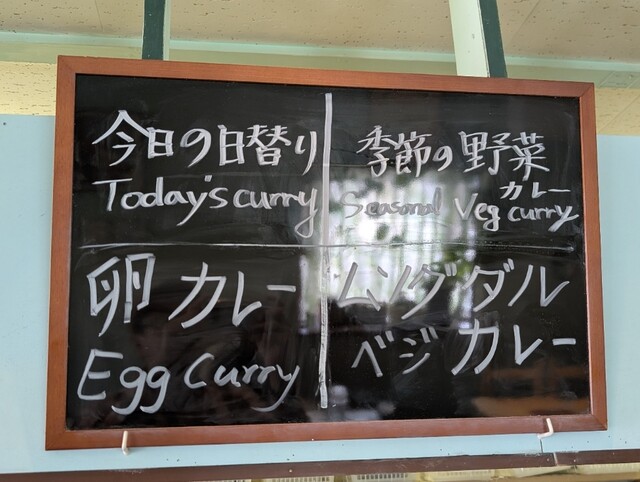 今日の日替り
Today's curry
卵カレー
Egg Curry
季節の野菜
カレー
Seasonal Veg curry
ムングダル
ベジカレー